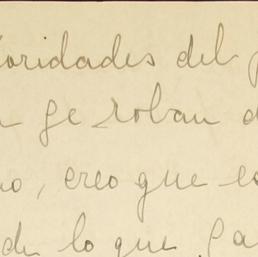 oridades del
ge roban d
o, creo que es
de lo que pa